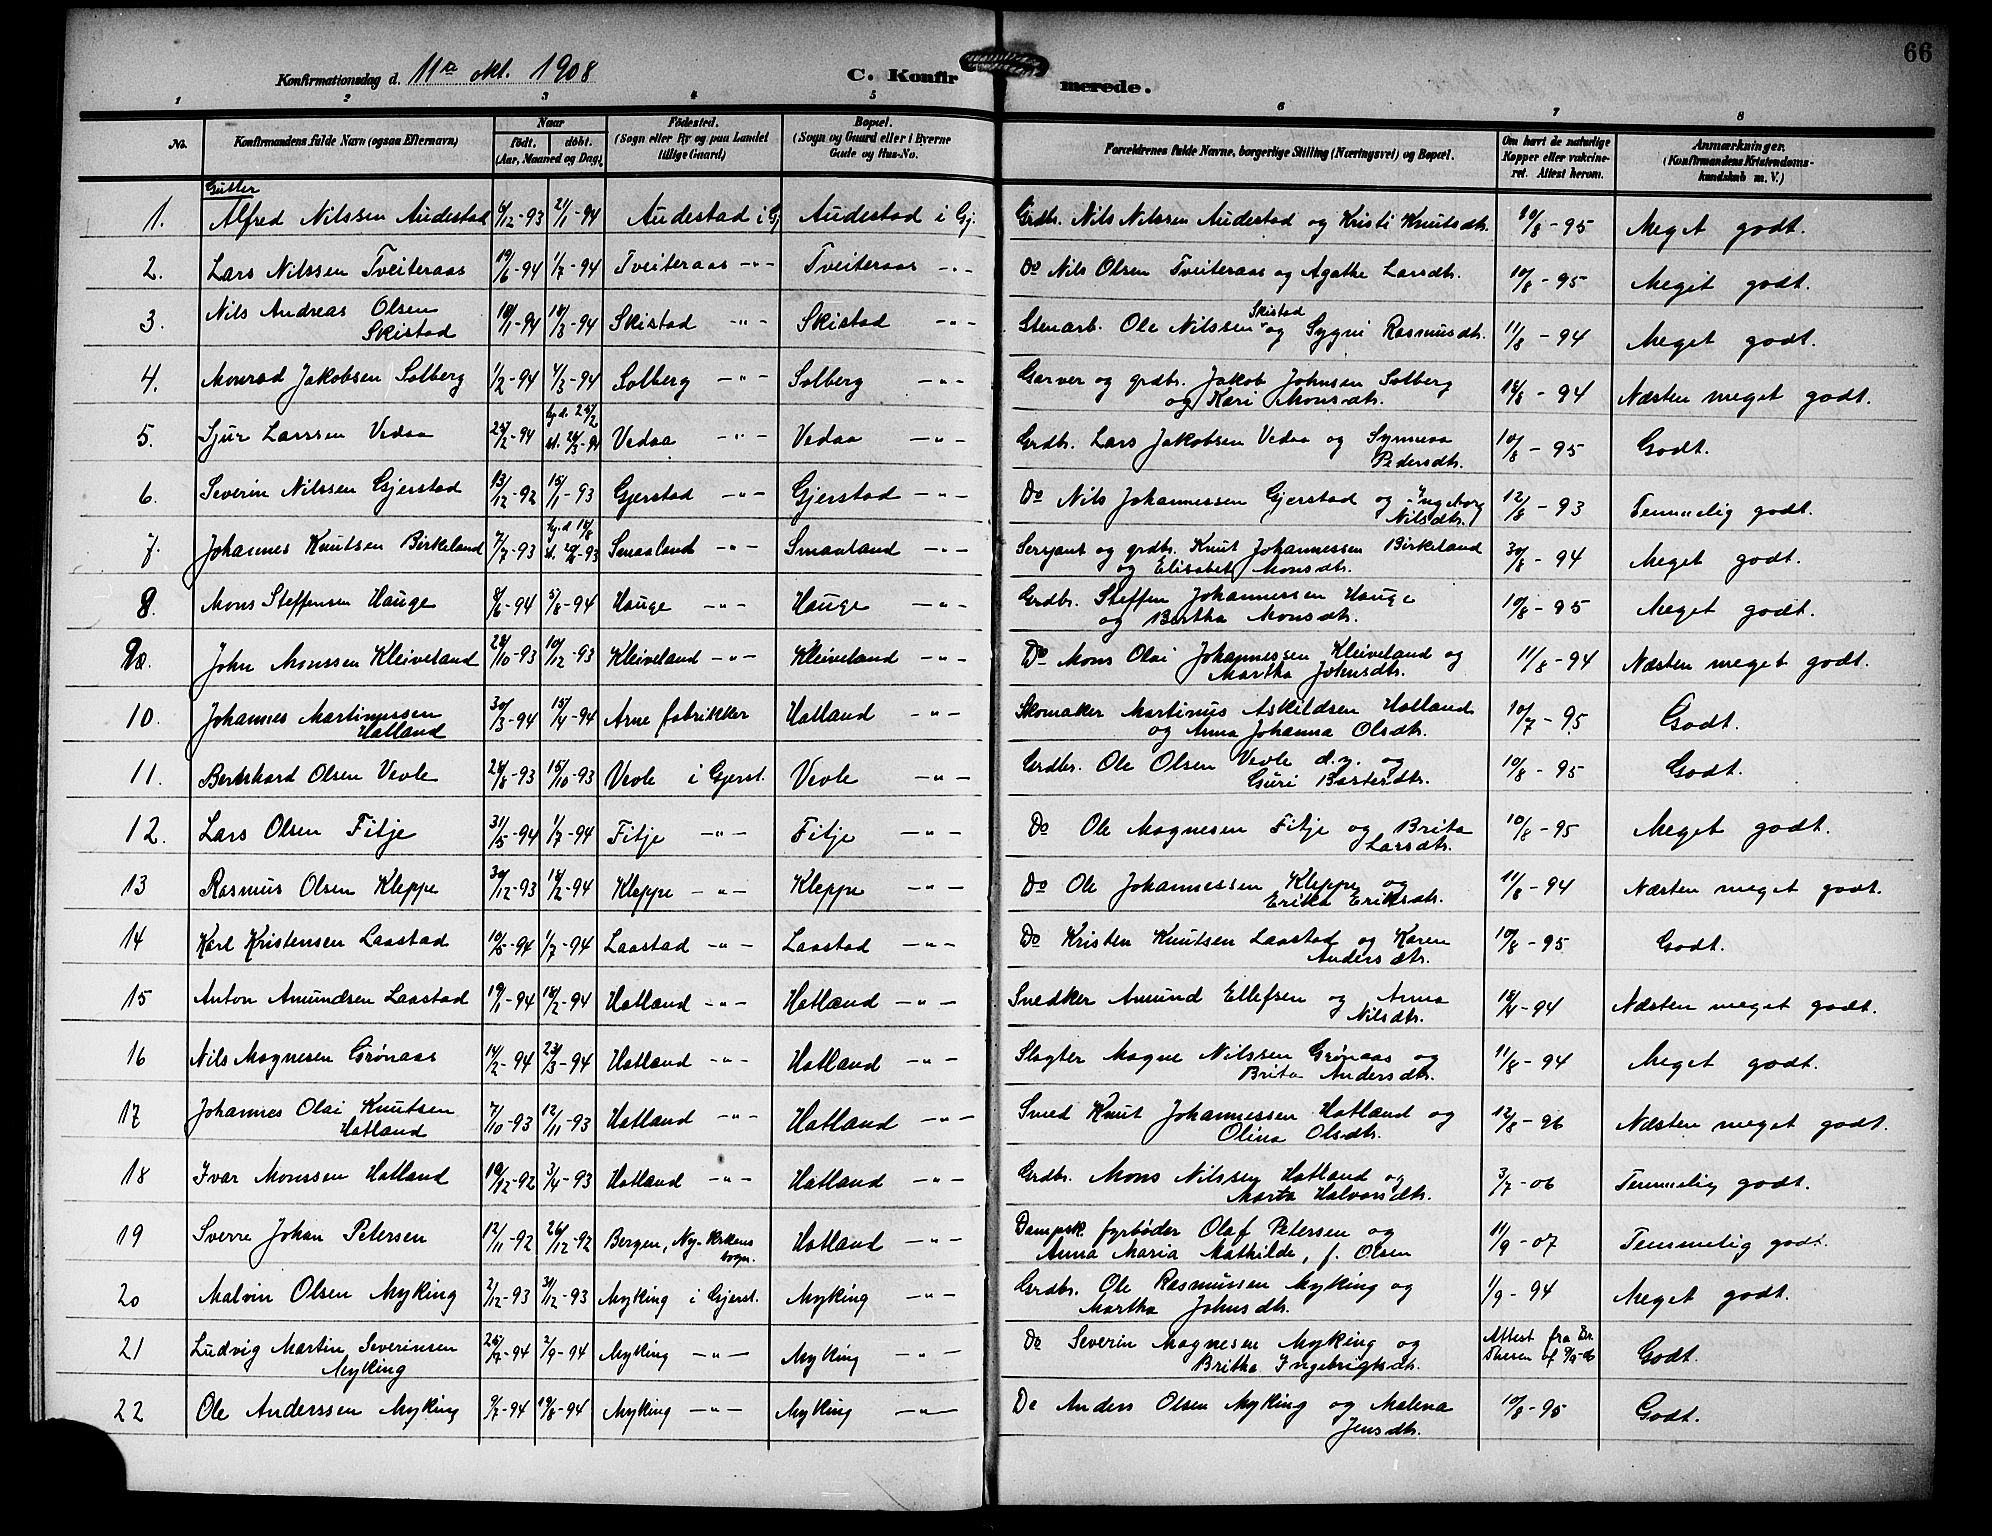 66
Konfirmationsdag d. 11te okt. 1908
C. Konfirmerede.
1 2 3 4 5 6 7 8
No. Konfirmandens fulde Navn (ogsaa Efternavn) Naar født. døbt. (Aar, Maaned og Dag) Fødested. (Sogn eller By og paa Landet tillige Gaard) Bopæl. (Sogn og Gaard eller i Byerne Gade og Hus-No. Forældrenes fulde Navne, borgerlige Stilling (Næringsvei) og Bopæl. Om havt de naturlige Kopper eller vakcineret. Attest herom. Anmærkninger. (Konfirmandens Kristendomskundskab m. V.)
Gutter
1. Alfred Nilssen Audestad 6/12-93 21/1-94 Audestad i Gj. Audestad i Gj. Grdbr. Nils Nilssen Audestad og Kristi Knutsdtr. 10/8-95 Meget godt.
2. Lars Nilssen Tveiteraas 19/6-94 1/7-94 Tveiteraas -"- Tveiteraas -"- Do Nils Olsen Tveiteraas og Agathe Larsdtr. 10/8-95 Meget godt.
3. Nils Andreas Olsen Skistad 18/1-94 18/3-94 Skistad -"- Skistad -"- Stenarb. Ole Nilssen Skistad og Sygni Rasmusdtr. 11/8-94 Meget godt.
4. Monrad Jakobsen Solberg 1/2-94 4/3-94 Solberg -"- Solberg -"- Garver og grdbr. Jakob Johnsen Solberg og Kari Monsdtr. 18/8-94 Næsten meget godt.
5. Sjur Larssen Vedaa 25/2-94 hj.d. 25/2 st. 26/3-94 Vedaa -"- Vedaa -"- Grdbr. Lars Jakobsen Vedaa og Synneva Pedersdtr. 10/8-95 Godt.
6. Severin Nilssen Gjerstad 13/12-92 15/1-93 Gjerstad -"- Gjerstad -"- Do Nils Johannessen Gjerstad og Ingeborg Nilsdtr. 12/8-93 Temmelig godt.
7. Johannes Knutsen Birkeland 7/7-93 hj.d 18/8 st. -93 Smaaland -"- Smaaland -"- Serjant og grdbr. Knut Johannessen Birkeland og Elisabet Monsdtr. 30/8-94 Meget godt.
8. Mons Steffensen Hauge 8/6-94 5/8-94 Hauge -"- Hauge -"- Grdbr. Steffen Johannessen Hauge og Bertha Monsdtr. 10/8-95 Meget godt.
9. John Monssen Kleiveland 28/10-93 10/12-93 Kleiveland -"- Kleiveland -"- Do Mons Olai Johannessen Kleiveland og Martha Johnsdtr. 11/8-94 Næsten meget godt.
10. Johannes Martinussen Hatland 30/3-94 15/4-94 Arne fabrikker Hatland -"- Skomaker Martinus Askildsen Hatland og Anna Johanna Olsdtr. 10/7-95 Godt.
11. Bernhard Olsen Vevle 28/8-93 15/10-93 Vevle i Gjerst. Vevle -"- Grdbr. Ole Olsen Vevle d.y. og Guri Baltersdtr. 10/8-95 Godt.
12. Lars Olsen Fitje 31/5-94 1/7-94 Fitje -"- Fitje -"- Do Ole Magnesen Fitje og Brita Larsdtr. 10/8-95 Meget godt.
13 Rasmus Olsen Kleppe 30/12-93 18/2-94 Kleppe -"- Kleppe -"- Do Ole Johannessen Kleppe og Erika Eriksdtr. 11/8-94 Næsten meget godt.
14 Karl Kristensen Laastad 10/5-94 1/7-94 Laastad -"- Laastad -"- Do Kristen Knutsen Laastad og Karen Andersdtr. 10/8-95 Godt.
15 Anton Amundsen Laastad 19/1-94 18/2-94 Hatland -"- Hatland -"- Snedker Amund Ellefsen og Anna Nilsdtr. 18/4-94 Næsten meget godt.
16 Nils Magnesen Grønaas 14/2-94 23/3-94 Hatland -"- Hatland -"- Slagter Magne Nilssen Grønaas og Brita Andersdtr. 11/8-94 Meget godt.
17 Johannes Olai Knutsen Hatland 7/10-93 12/11-93 Hatland -"- Hatland -"- Smed Knut Johannessen Hatland og Olina Olsdtr. 12/8-96 Næsten meget godt.
18 Ivar Monssen Hatland 19/12-92 3/4-93 Hatland -"- Hatland -"- Grdbr. Mons Nilssen Hatland og Marta Halvorsdtr. 3/7-06 Temmelig godt.
19 Sverre Johan Petersen 12/11-92 26/12-92 Bergen, Ny-krkens sogn. Hatland -"- Dampsk. fyrbøder Olaf Petersen og Anna Maria Mathilde, f. Olsen 11/9-07 Temmelig godt.
20 Malvin Olsen Myking 2/12-93 31/12-93 Myking i Gjerst. Myking -"- Grdbr. Ole Rasmussen Myking og Martha Johnsdtr. 1/9-94 Meget godt.
21 Ludvig Martin Severinsen Myking 25/7-94 2/9-94 Myking -"- Myking -"- Do Severin Magnesen Myking og Britha Ingebrigtsdtr. Attest fra Dr. af 9/9-06 Godt.
22 Ole Anderssen Myking 9/7-94 19/8-94 Myking -"- Myking -"- Do Anders Olsen Myking og Malena Jensdtr. 10/8-95 Godt.